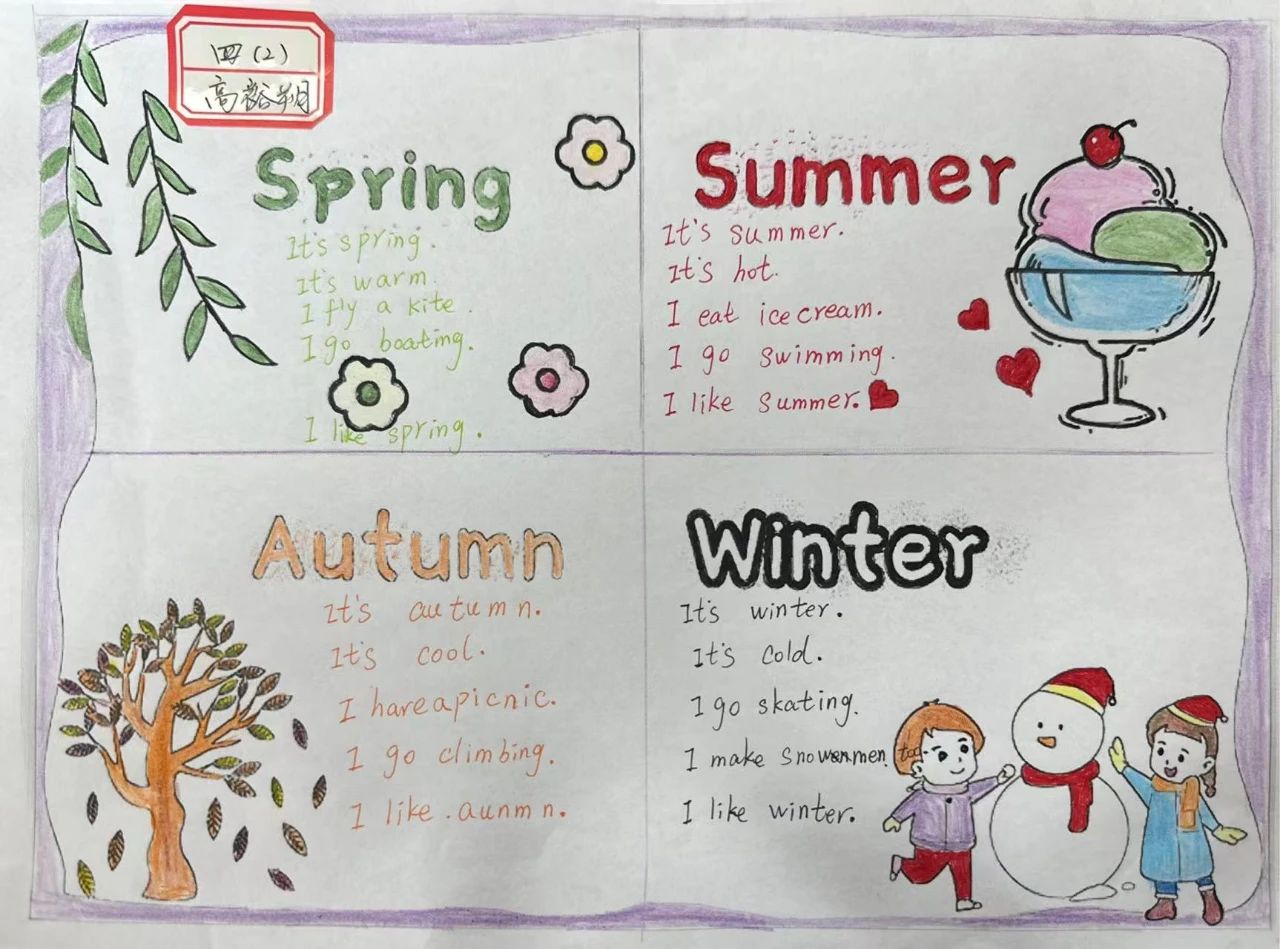 四（2）
高裕朔
Spring
It's spring.
It's warm.
I fly a kite.
I go boating.
I like spring.
Summer
It's summer.
It's hot.
I eat ice cream.
I go swimming.
I like summer.
Autumn
It's autumn.
It's cool.
I hare a picnic.
I go climbing.
I like . aunmn.
Winter
It's winter.
It's cold.
I go skating.
I make snowenmen too
I like winter.